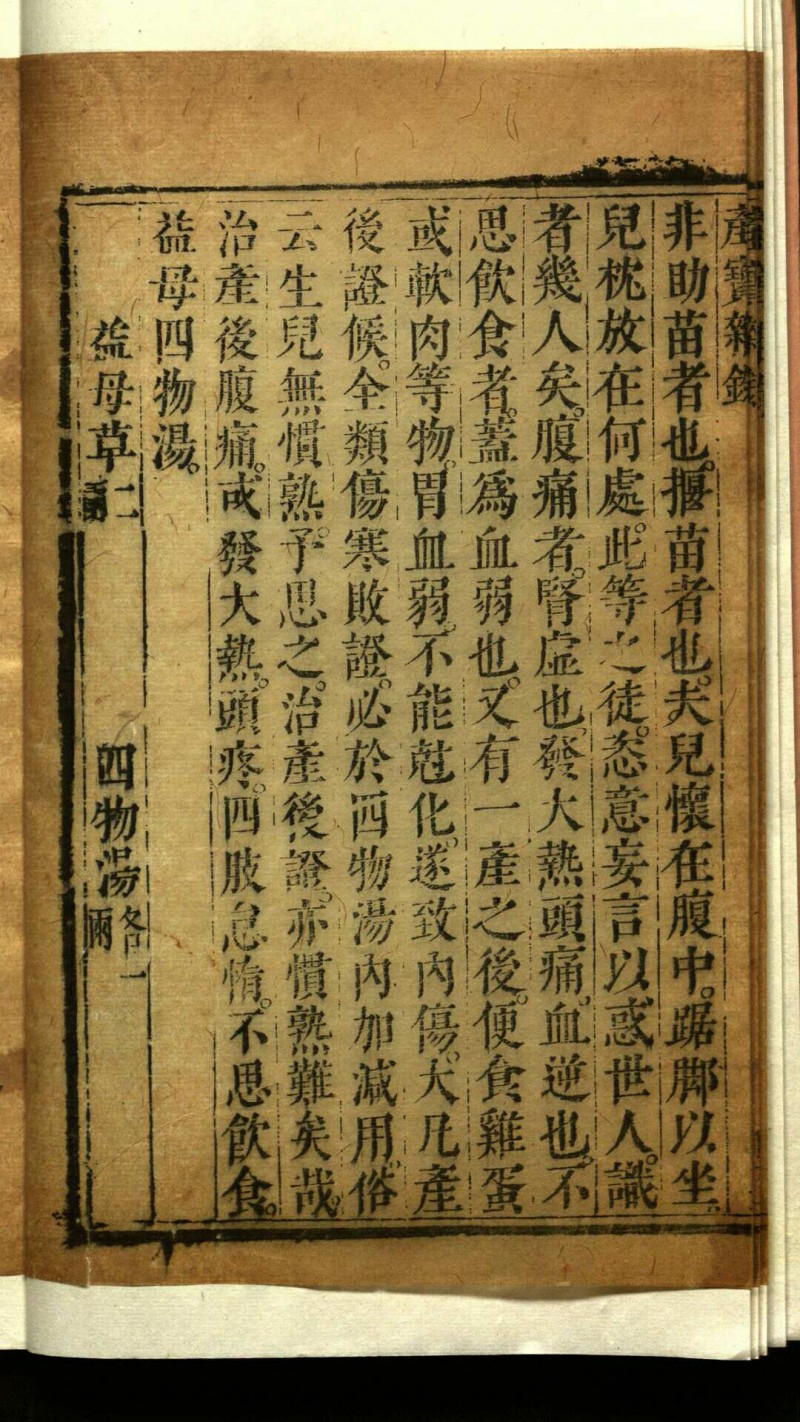 產寶雜錄
非助苗者也。揠苗者也。夫兒懷在腹中。踞脚以坐。
兒枕放在何處。此等之徒。忞意妄言以惑世人。識
者幾人矣。腹痛者。腎虛也。發大熱頭痛。血逆也。不
思飲食者。蓋爲血弱也。又有一產之後。便食雞蛋
或軟肉等物。胃血弱。不能尅化。遂致內傷。大凡產
後證候。全類傷寒敗證。必於四物湯內加減用。俗
云生兒無慣熟。予思之。治產後證。亦慣熟難矣哉。
治產後腹痛。或發大熱。頭疼。四肢怠惰。不思飲食。
益母四物湯。
益母草二兩 四物湯各一兩